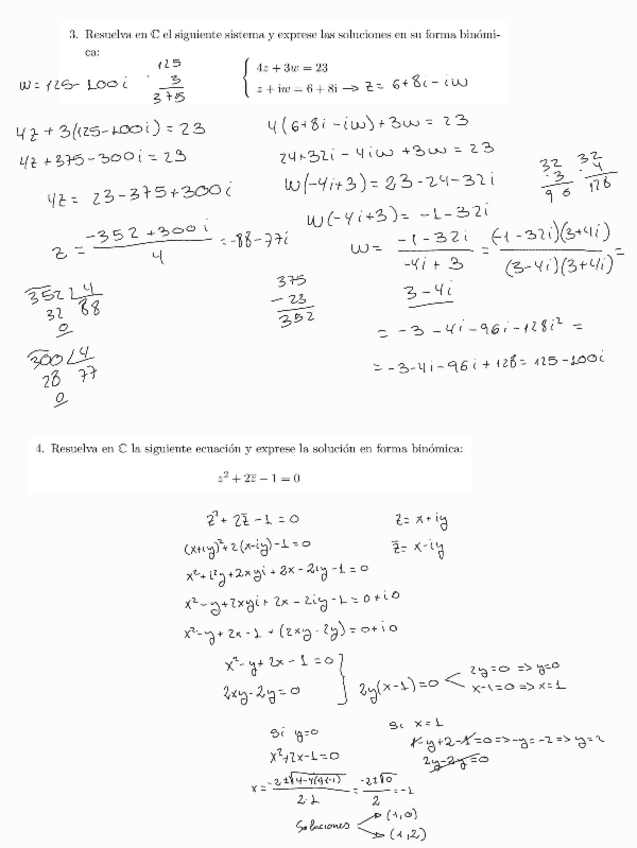 3. Resuelva en ℂ el siguiente sistema y exprese las soluciones en su forma binómi-
ca:
4z + 3w = 23
z + iw = 6 + 8i → z = 6+8i - iw
w = 125 - 100i
125
· 3
375
4z + 3(125-100i) = 23
4z + 375 - 300i = 23
4z = 23 - 375 + 300i
z = (-352 + 300i)/4 = -88 - 77i
352 ∟4
32 88
0
300 ∟4
28 77
0
4(6+8i - iw) + 3w = 23
24 + 32i - 4iw + 3w = 23
w(-4i+3) = 23 - 24 - 32i
w(-4i+3) = -1 - 32i
w = (-1-32i)/(-4i+3) = (-1-32i)(3+4i)/(3-4i)(3+4i) =
3-4i
32
· 3
96
32
· 4
128
375
- 23
352
= -3 - 4i - 96i - 128i² =
= -3 - 4i - 96i + 128 = 125 - 100i
4. Resuelva en ℂ la siguiente ecuación y exprese la solución en forma binómica:
z² + 2z̄ − 1 = 0
z² + 2z̄ - 1 = 0
z = x + iy
(x+iy)² + 2(x-iy) - 1 = 0
z̄ = x - iy
x² + i²y + 2xyi + 2x - 2iy - 1 = 0
x² - y + 2xyi + 2x - 2iy - 1 = 0 + i0
x² - y + 2x - 1 + (2xy - 2y) = 0 + i0
x² - y + 2x - 1 = 0
2xy - 2y = 0
2y(x-1) = 0
2y = 0 => y = 0
x - 1 = 0 => x = 1
Si y = 0
x² + 2x - 1 = 0
x = (-2 ± √4-4(1)(-1))/2·1 = (-2 ± √0)/2 = -1
Si x = 1
1 - y + 2 - 1 = 0 => -y = -2 => y = 2
2y - 2y = 0
Soluciones
(1,0)
(1,2)